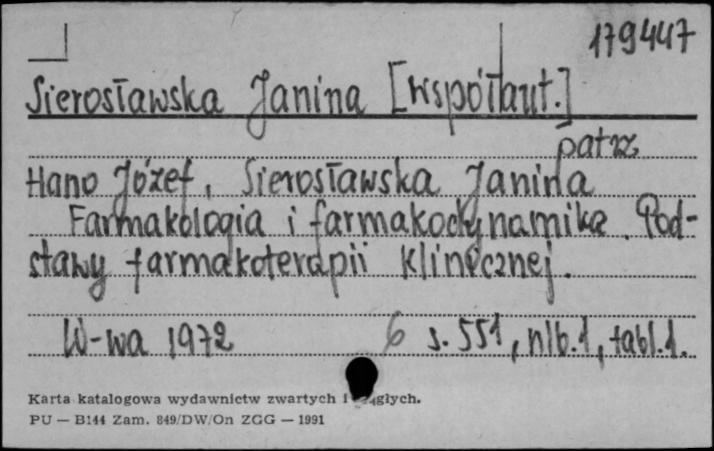 179447
Sierosławska Janina [współaut.]
patrz
Hano Józef, Sierosławska Janina
Farmakologia i farmakodynamika. Pod-
stawy farmakoterapii klinicznej.
W-wa 1972 6 s. 551, nlb. 1, tabl. 1.
Karta katalogowa wydawnictw zwartych i
PU — B144 Zam. 849/DW/On ZGG — 1991